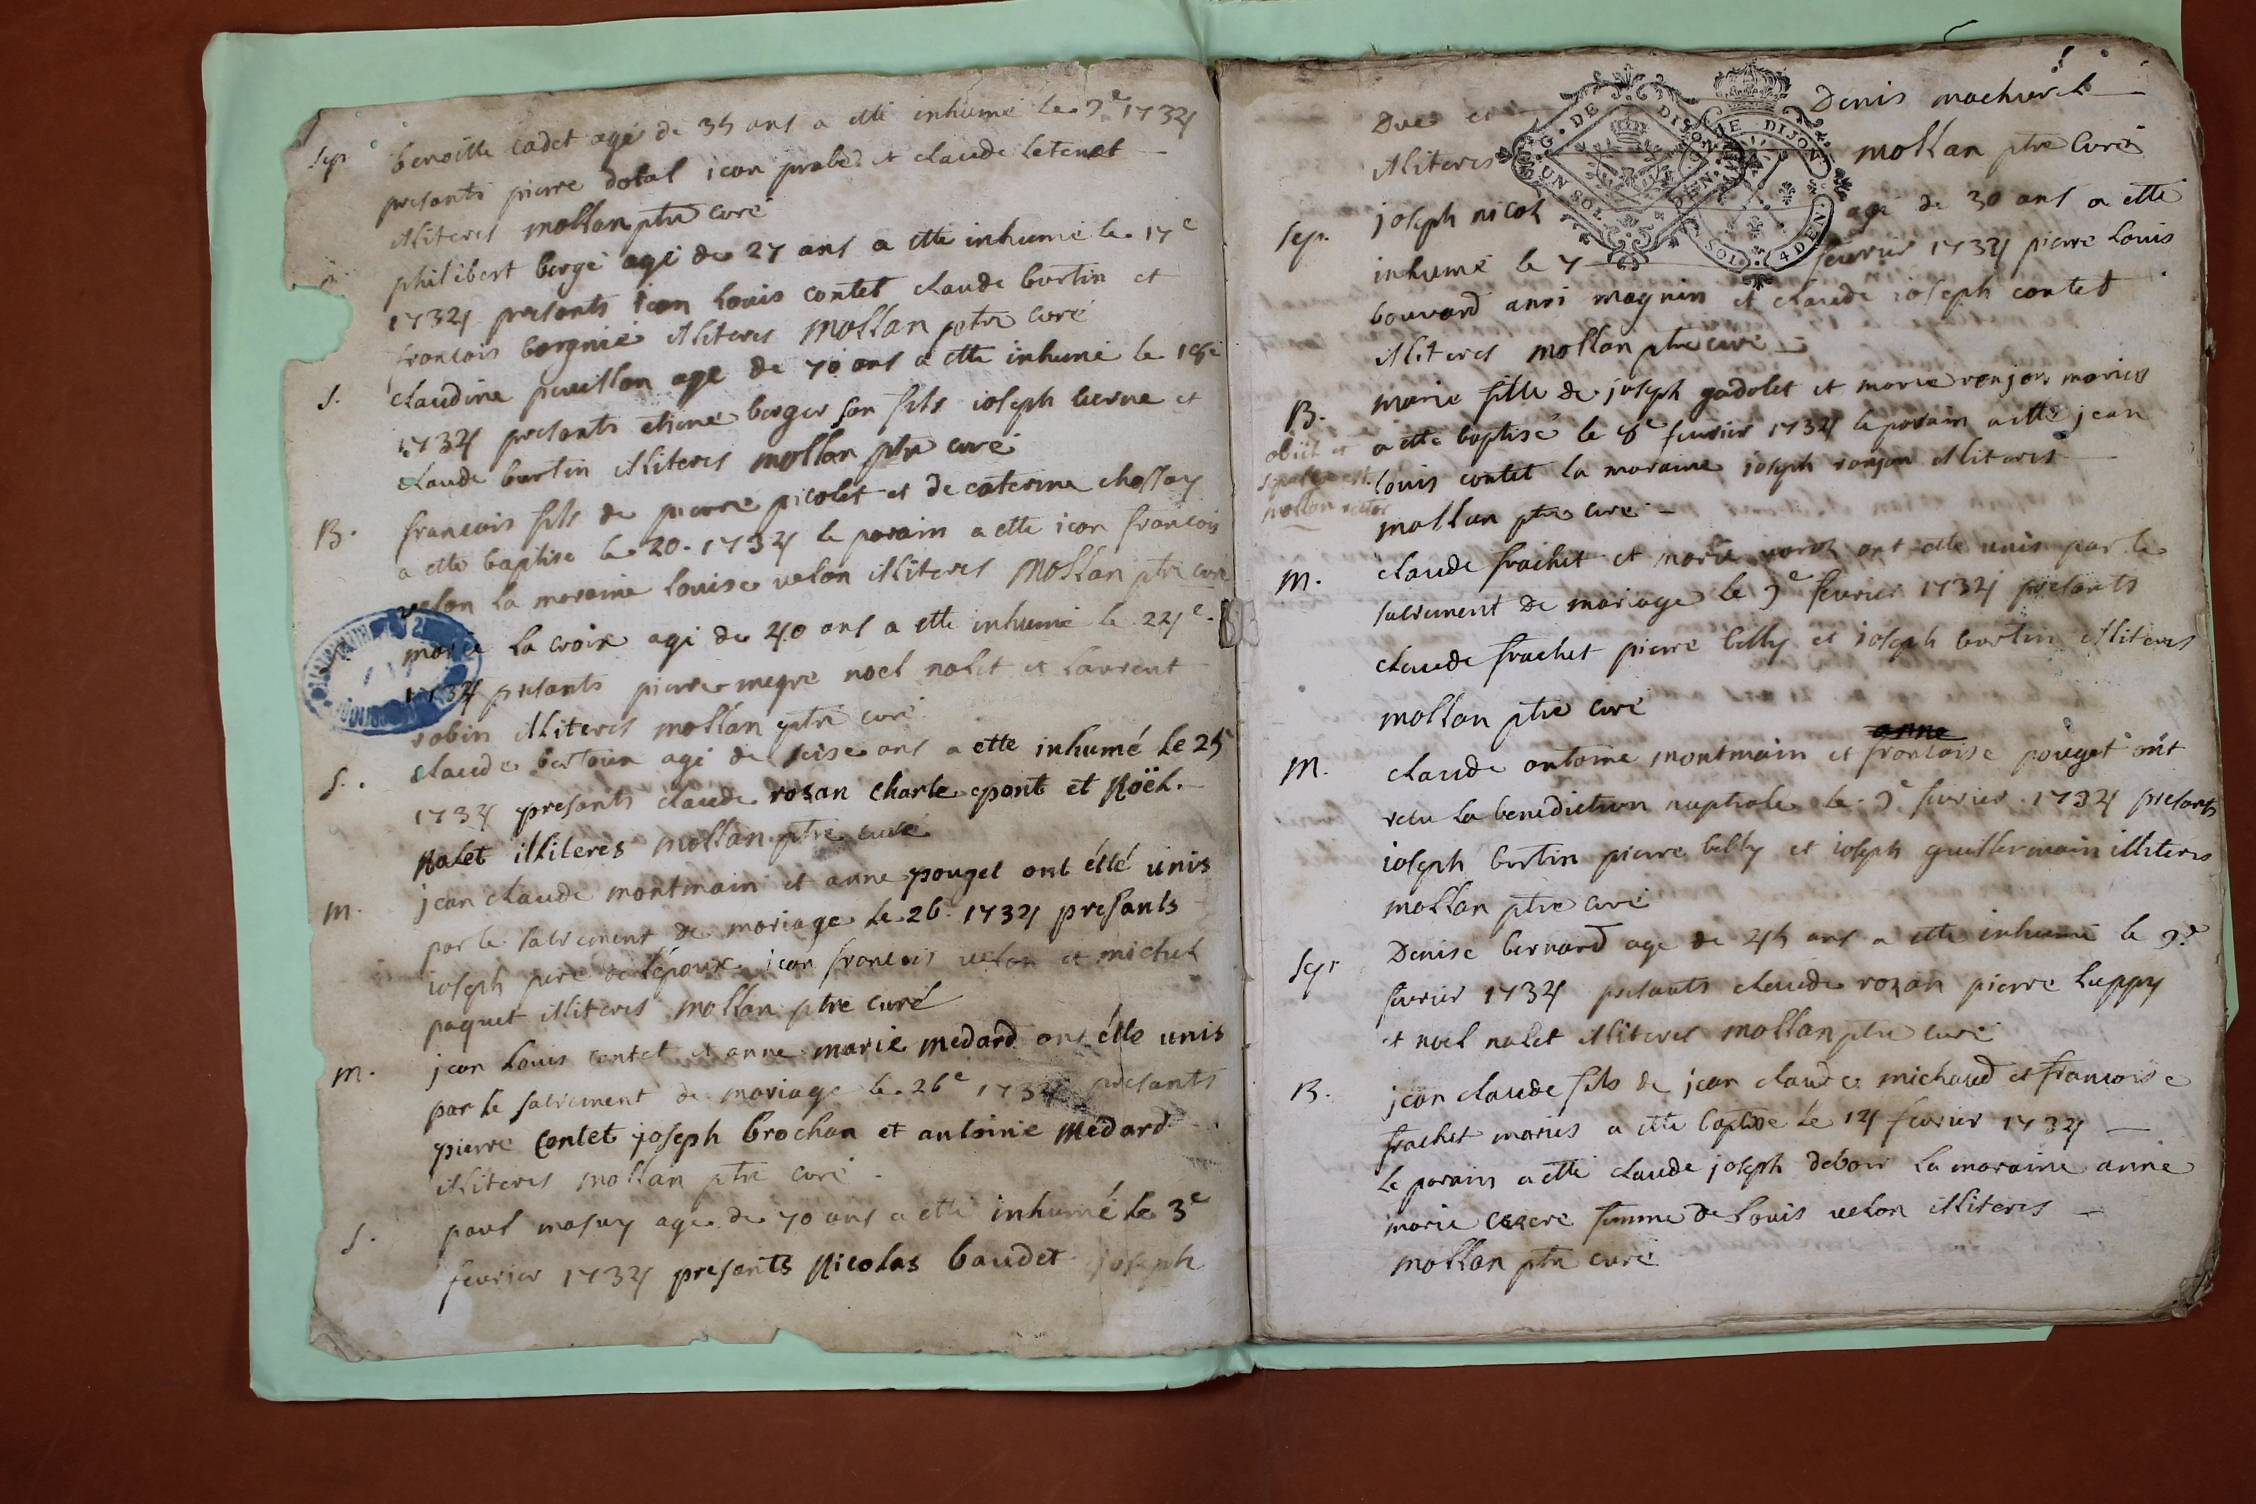 Sep. benoitte cadet agé de 35 ans a etté inhumé le 9e 1734
presants pierre dolal jean probet et claude letenet
illiteres mollan ptre curé
philibert bergé agé de 27 ans a etté inhumé le 17e
1734 presants jean louis contet claude burtin et
francois borgnié illiteres mollan ptre curé
S. claudine peuillon age de 70 ans a etté inhumé le 18e
1734 presants etiene berger son fils joseph berne et
claude burtin illiteres mollan ptre curé
B. francois fils de pierre picolet et de caterine chossay
a etté baptisé le 20. 1734 le parain a etté jean francois
velon la maraine louise velon illiteres mollan ptre curé
marie la croix agé de 40 ans a etté inhumé le 24e
1734 presants pierre megre noel nalet et laurent
robin illiteres mollan ptre curé
S. claude bertoux agé de seise ans a etté inhumé le 25e
1734 presants claude rosan charle pont et Noël
Nalet illiteres mollan ptre curé
M. jean claude montmain et anne pouget ont étté unis
par le sacrement de mariage le 26e 1734 presants
joseph pere de l'époux jean francois velon et michel
paquet illiteres mollan ptre curé
M. jean louis contet et anne marie medard ont étté unis
par le sacrement de mariage le 26e 1734 presants
pierre contet joseph brochan et antoine Médard
illiteres mollan ptre curé
S. paul masuy age de 70 ans a etté inhumé le 3e
fevrier 1734 presants Nicolas baudet joseph
Duc et Denis machurel
illiteres mollan ptre curé
G. DE DIJON
UN SOL 4 DEN.
DIJON
SOL. 4 DEN.
Sep. joseph nicol agé de 30 ans a etté
inhumé le 7 fevrier 1734 pierre louis
bouvard anri magnin et claude joseph contet
illiteres mollan ptre curé
B. marie fille de joseph gadolet et marie ronjon mariés
a etté baptisé le 8e fevrier 1734 le parain a etté jean
louis contet la maraine joseph ronjon illiteres
mollan ptre curé
obiit et
sepulta est
mollan rector
M. claude frachet et marie varoz ont etté unis par le
sacrement de mariage le 9e fevrier 1734 presants
claude frachet pierre billy et joseph burtin illiteres
mollan ptre curé
anne
M. claude antoine montmain et francoise pouget ont
recu la benediction nuptiale le 9e fevrier 1734 presants
joseph burtin pierre belly et joseph guillermain illiteres
mollan ptre curé
Sepr Denise bernard age de 45 ans a etté inhumé le 9e
fevrier 1734 presants claude rozan pierre luppy
et noel nalet illiteres mollan ptre curé
B. jean claude fils de jean claude michaud et francoise
frachet mariés a etté baptise le 14 fevrier 1734
le parain a etté claude joseph debour la maraine anne
marie femme de louis velon illiteres
mollan ptre curé